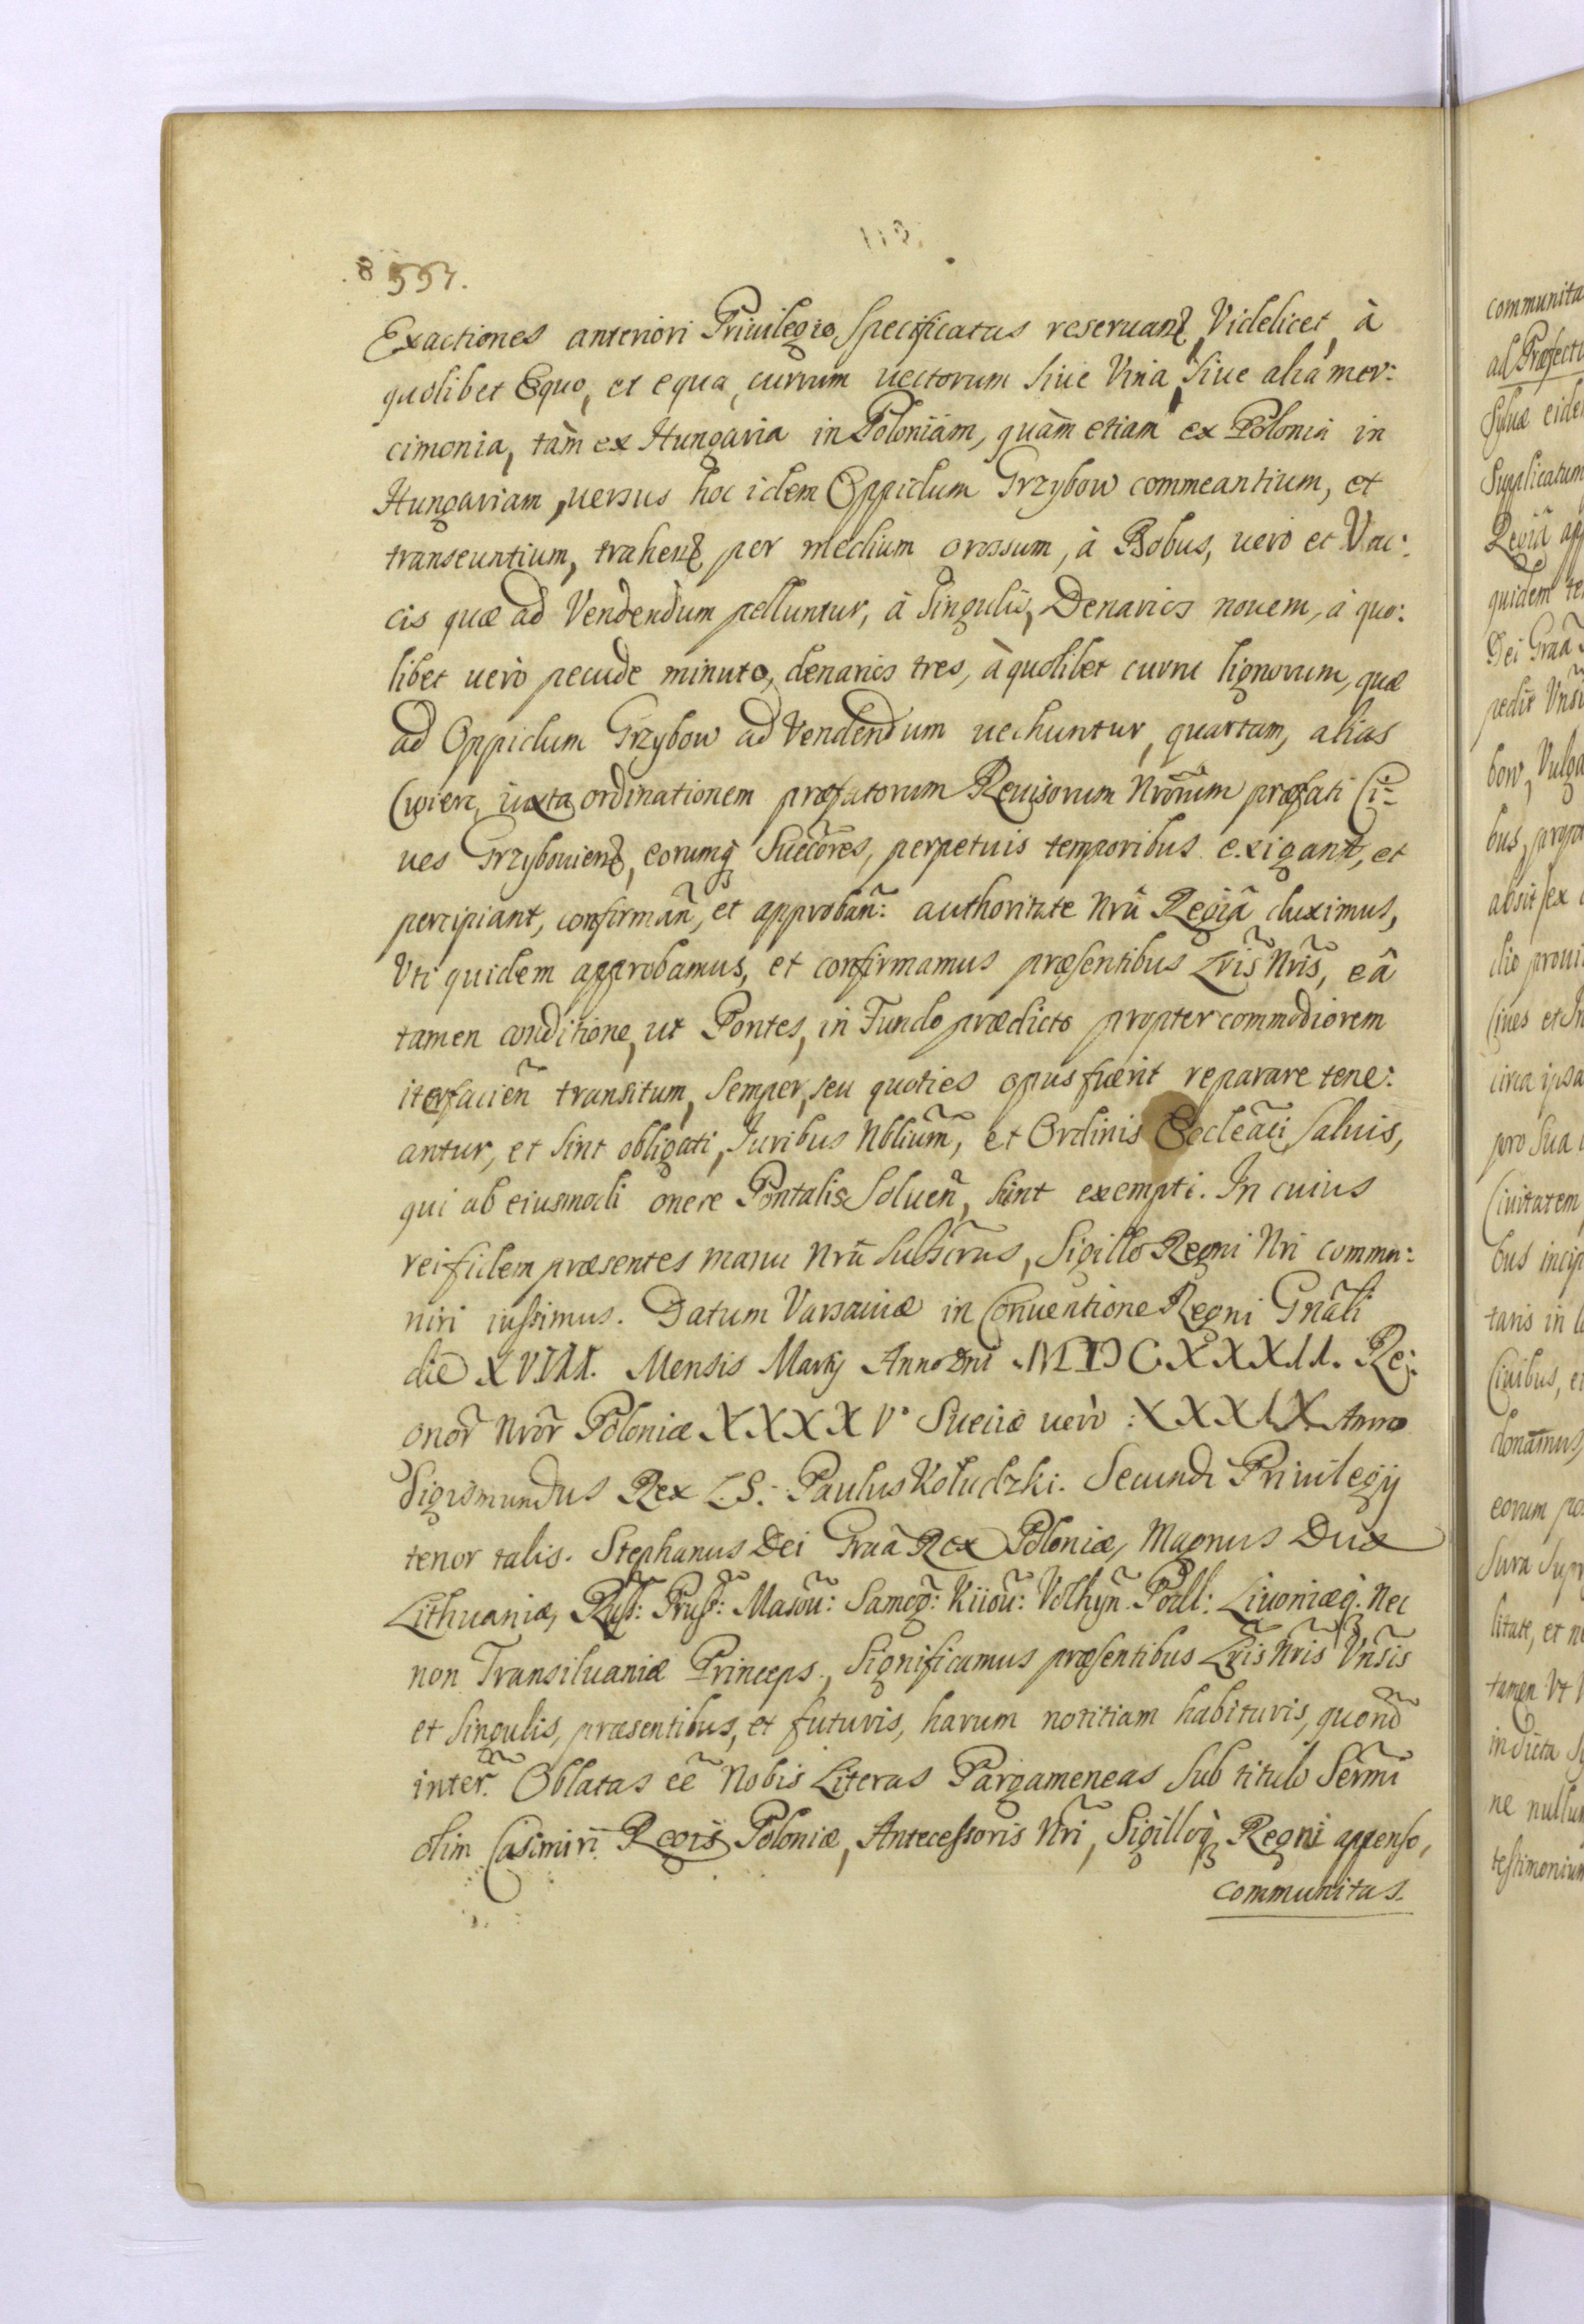 557.
Exactiones anteriori Priuilegio Specificatas reseruan̄, Videlicet, à
quolibet Equo, et equa, currum uectorum siue Vina, siue alia mer:
cimonia, tàm ex Hungaria in Poloniam, quàm etiam ex Polonia in
Hungariam, uersus hoc idem Oppidum Grzybow commeantium, et
transeuntium, trahen̄ per medium grossum, à Bobus, uerò et Vac:
cis quæ ad Vendendum pelluntur, à singulis, Denarios nouem, à quo:
libet uerò pecude minuto, denarios tres, à quolibet curru lignorum, quæ
ad Oppidum Grzybow ad Vendendum uehuntur, quartam, alias
Cwierc, iuxta ordinationem præfatorum Reuisorum Nrōrum præfati Ci:
ues Grzybouien̄, eorumq̃ Succōres, perpetuis temporibus exigant, et
percipiant, confirmañ, et approbañ: authoritate Nrã Regiã duximus,
Vti quidem approbamus, et confirmamus præsentibus Lrĩs Nrĩs, eâ
tamen conditione, ut Pontes, in Fundo prædicto propter commodiorem
iterfacieñ transitum, semper, seu quoties opus fuerit reparare tene:
antur, et sint obligati, Iuribus Nblium̃, et Ordinis Eccleãci saluis,
qui ab eiusmodi onere Pontalis Solueñ, sunt exempti. In cuius
rei fidem præsentes manu Nrã Subscrãs, Sigillo Regni Nri commu:
niri iussimus. Datum Varsauiæ in Conuentione Regni Gnãli
die XVIII. Mensis Martij Anno Dni MDCXXXII. Re:
gnor̃ Nror̃ Poloniæ XXXXV° Sueciæ uerò XXXIX Anno
Sigismundus Rex L.S. Paulus Kołudzki. Secundi Priuilegij
tenor talis. Stephanus Dei Grãa Rex Poloniæ, Magnus Dux
Lithuaniæ, Russ: Pruss: Masou: Samog: Kiiou: Volhyñ Podl: Liuoniæq̃. Nec
non Transiluaniæ Princeps, Significamus præsentibus Lrĩs Nrĩs Vnĩsis
et singulis, præsentibus, et futuris, harum notitiam habituris, quorũ
inter̃. Oblatas eẽ Nobis Literas Pargameneas sub titulo Serm̃i
olim Casimiri Regis Poloniæ, Antecessoris Nri, Sigilloq̃ Regni appenso,
communitas.